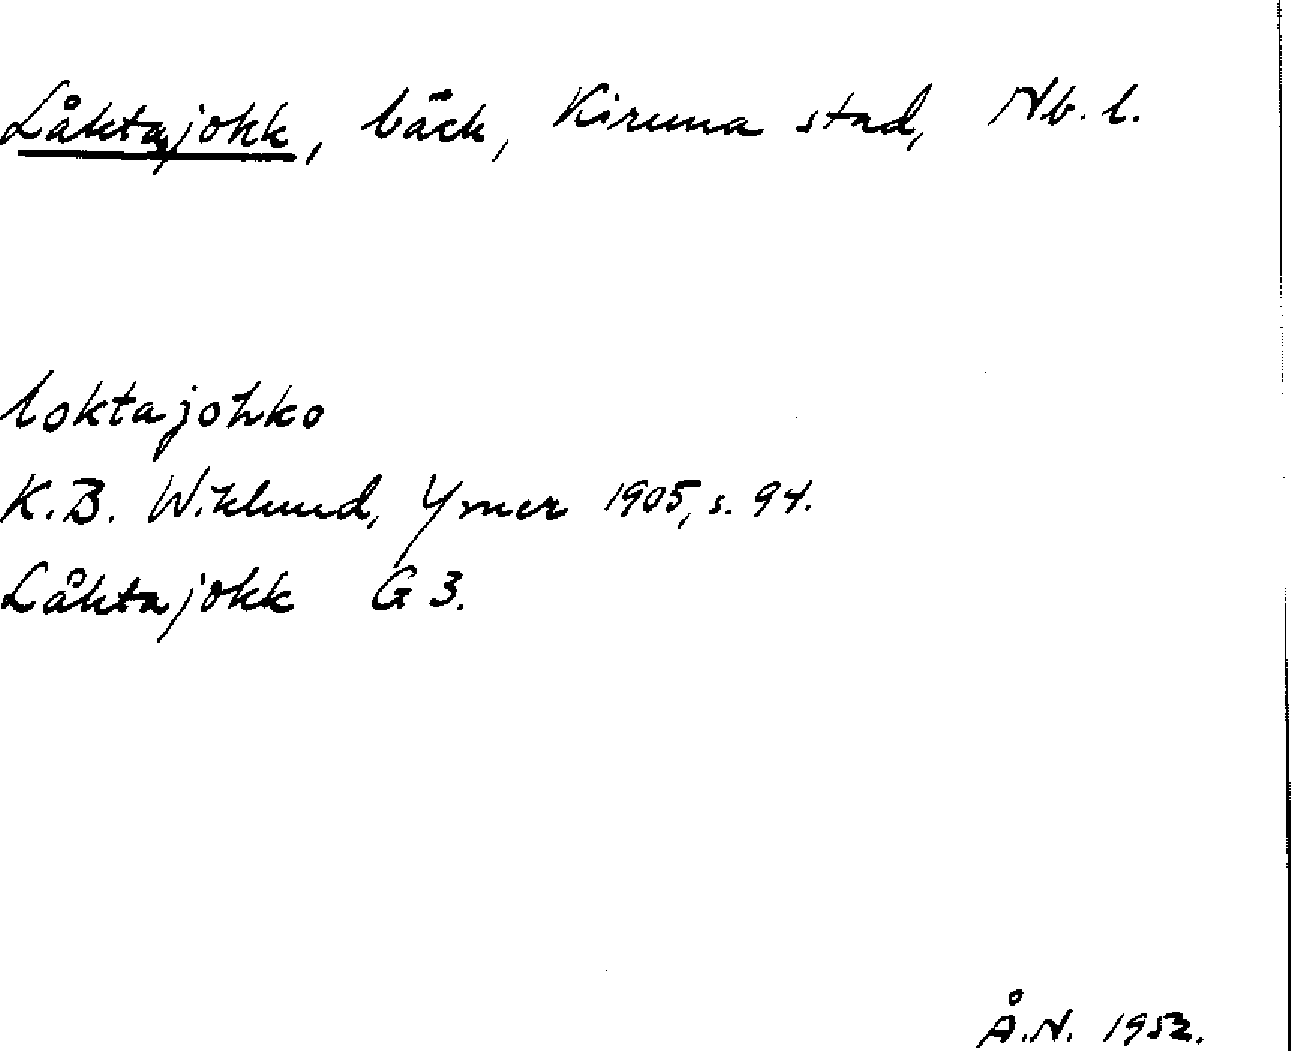 Låktajokk, bäck, Kiruna stad, Nb. l.
loktajohko
K.B. Wiklund, Ymer 1905, s. 94.
Låktajokk G 3.
Å.N. 1952.